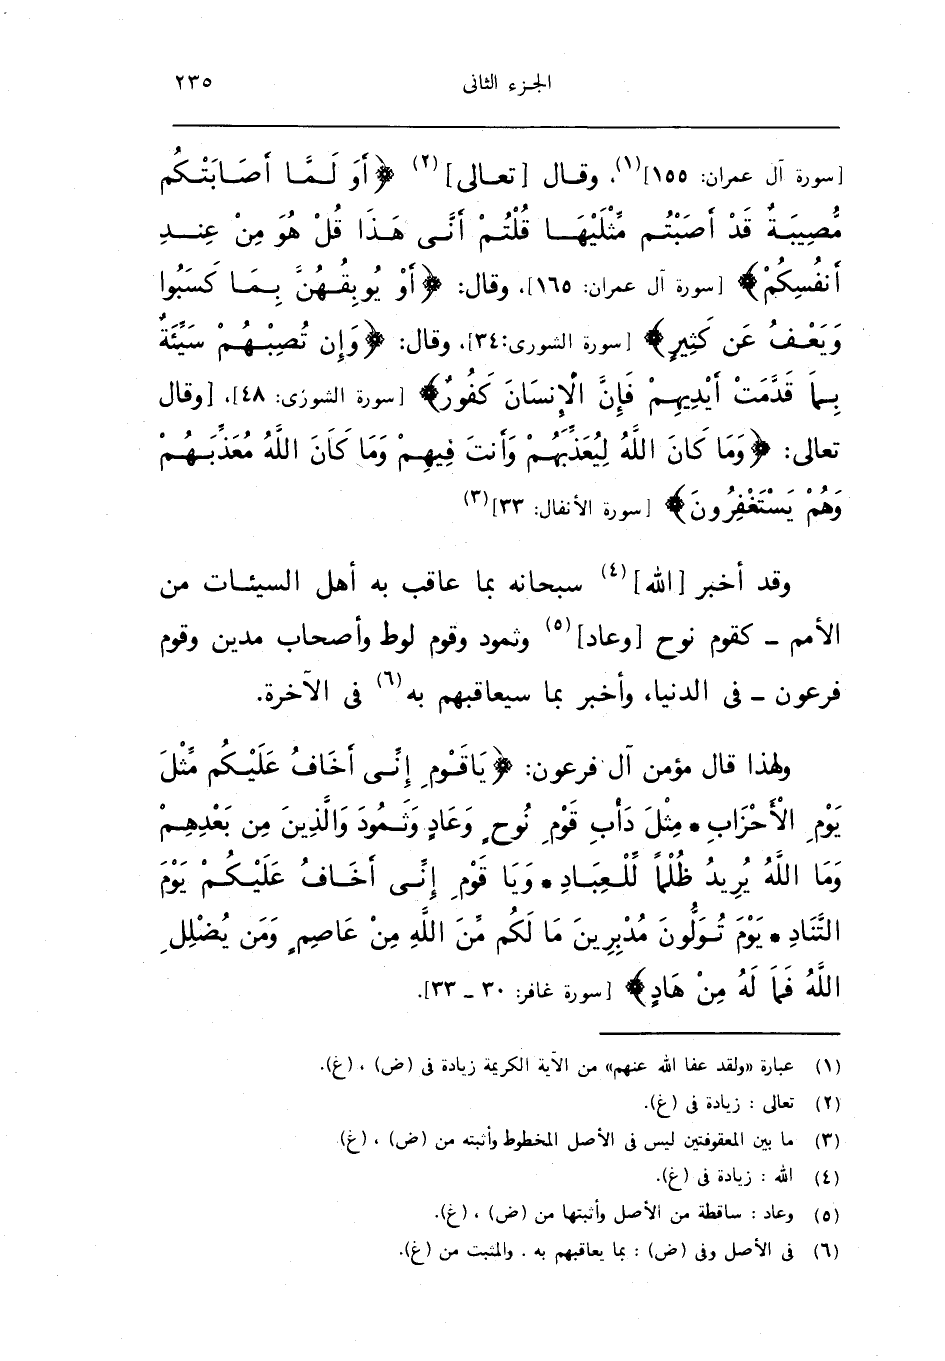 الجزء الثانى ٢٣٥
[سورة آل عمران: ١٥٥](١)، وقال [تعالى](٢) ﴿أَوَ لَمَّا أَصَابَتْكُم
مُّصِيبَةٌ قَدْ أَصَبْتُم مِّثْلَيْهَا قُلْتُمْ أَنَّى هَذَا قُلْ هُوَ مِنْ عِندِ
أَنفُسِكُمْ﴾ [سورة آل عمران: ١٦٥]، وقال: ﴿أَوْ يُوبِقْهُنَّ بِمَا كَسَبُوا
وَيَعْفُ عَن كَثِيرٍ﴾ [سورة الشورى:٣٤]، وقال: ﴿وَإِن تُصِبْهُمْ سَيِّئَةٌ
بِمَا قَدَّمَتْ أَيْدِيهِمْ فَإِنَّ الْإِنسَانَ كَفُورٌ﴾ [سورة الشورى: ٤٨]، [وقال
تعالى: ﴿وَمَا كَانَ اللَّهُ لِيُعَذِّبَهُمْ وَأَنتَ فِيهِمْ وَمَا كَانَ اللَّهُ مُعَذِّبَهُمْ
وَهُمْ يَسْتَغْفِرُونَ﴾ [سورة الأنفال: ٣٣](٣)
وقد أخبر [الله](٤) سبحانه بما عاقب به أهل السيئات من
الأمم ـ كقوم نوح [وعاد](٥) وثمود وقوم لوط وأصحاب مدين وقوم
فرعون ـ فى الدنيا، وأخبر بما سيعاقبهم به(٦) فى الآخرة.
ولهذا قال مؤمن آل فرعون: ﴿يَاقَوْمِ إِنِّى أَخَافُ عَلَيْكُم مِّثْلَ
يَوْمِ الْأَحْزَابِ • مِثْلَ دَأْبِ قَوْمِ نُوحٍ وَعَادٍ وَثَمُودَ وَالَّذِينَ مِن بَعْدِهِمْ
وَمَا اللَّهُ يُرِيدُ ظُلْمًا لِّلْعِبَادِ • وَيَا قَوْمِ إِنِّى أَخَافُ عَلَيْكُمْ يَوْمَ
التَّنَادِ • يَوْمَ تُوَلُّونَ مُدْبِرِينَ مَا لَكُم مِّنَ اللَّهِ مِنْ عَاصِمٍ وَمَن يُضْلِلِ
اللَّهُ فَمَا لَهُ مِنْ هَادٍ﴾ [سورة غافر: ٣٠ ـ ٣٣].
(١) عبارة «ولقد عفا الله عنهم» من الآية الكريمة زيادة فى (ض) ، (غ).
(٢) تعالى : زيادة فى (غ).
(٣) ما بين المعقوفتين ليس فى الأصل المخطوط وأثبته من (ض) ، (غ)
(٤) الله : زيادة فى (غ).
(٥) وعاد : ساقطة من الأصل وأثبتها من (ض) ، (غ).
(٦) فى الأصل وفى (ض) : بما يعاقبهم به . والمثبت من (غ).